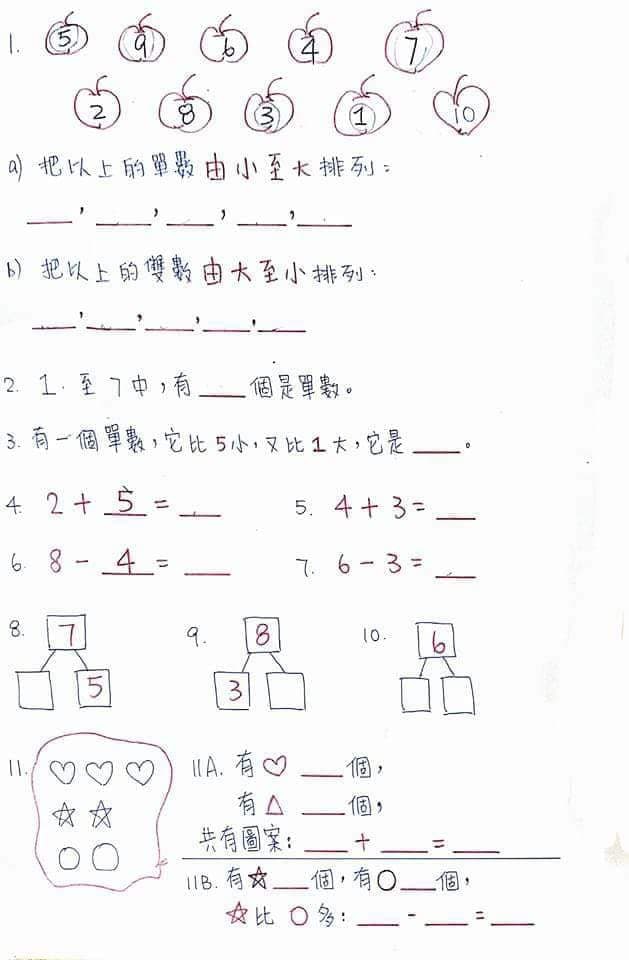 1. 5 9 6 4 7
2 8 3 1 10
a) 把以上的單數由小至大排列：
___，___，___，___，___
b) 把以上的雙數由大至小排列：
___，___，___，___，___
2. 1. 至 7 中，有 ___ 個是單數。
3. 有一個單數，它比 5 小，又比 1 大，它是 ___。
4. 2 + 5 = ___ 5. 4 + 3 = ___
6. 8 - 4 = ___ 7. 6 - 3 = ___
8. 7 9. 8 10. 6
5 3
11. 11A. 有 ♡ ___ 個，
有 △ ___ 個，
共有圖案：___ + ___ = ___
11B. 有 ☆ ___ 個，有 ○ ___ 個，
☆ 比 ○ 多：___ - ___ = ___